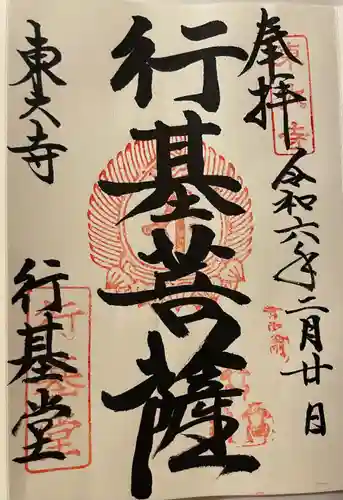 奉拝
令和六年二月廿日
行基菩薩
東大寺
行基堂
行基堂